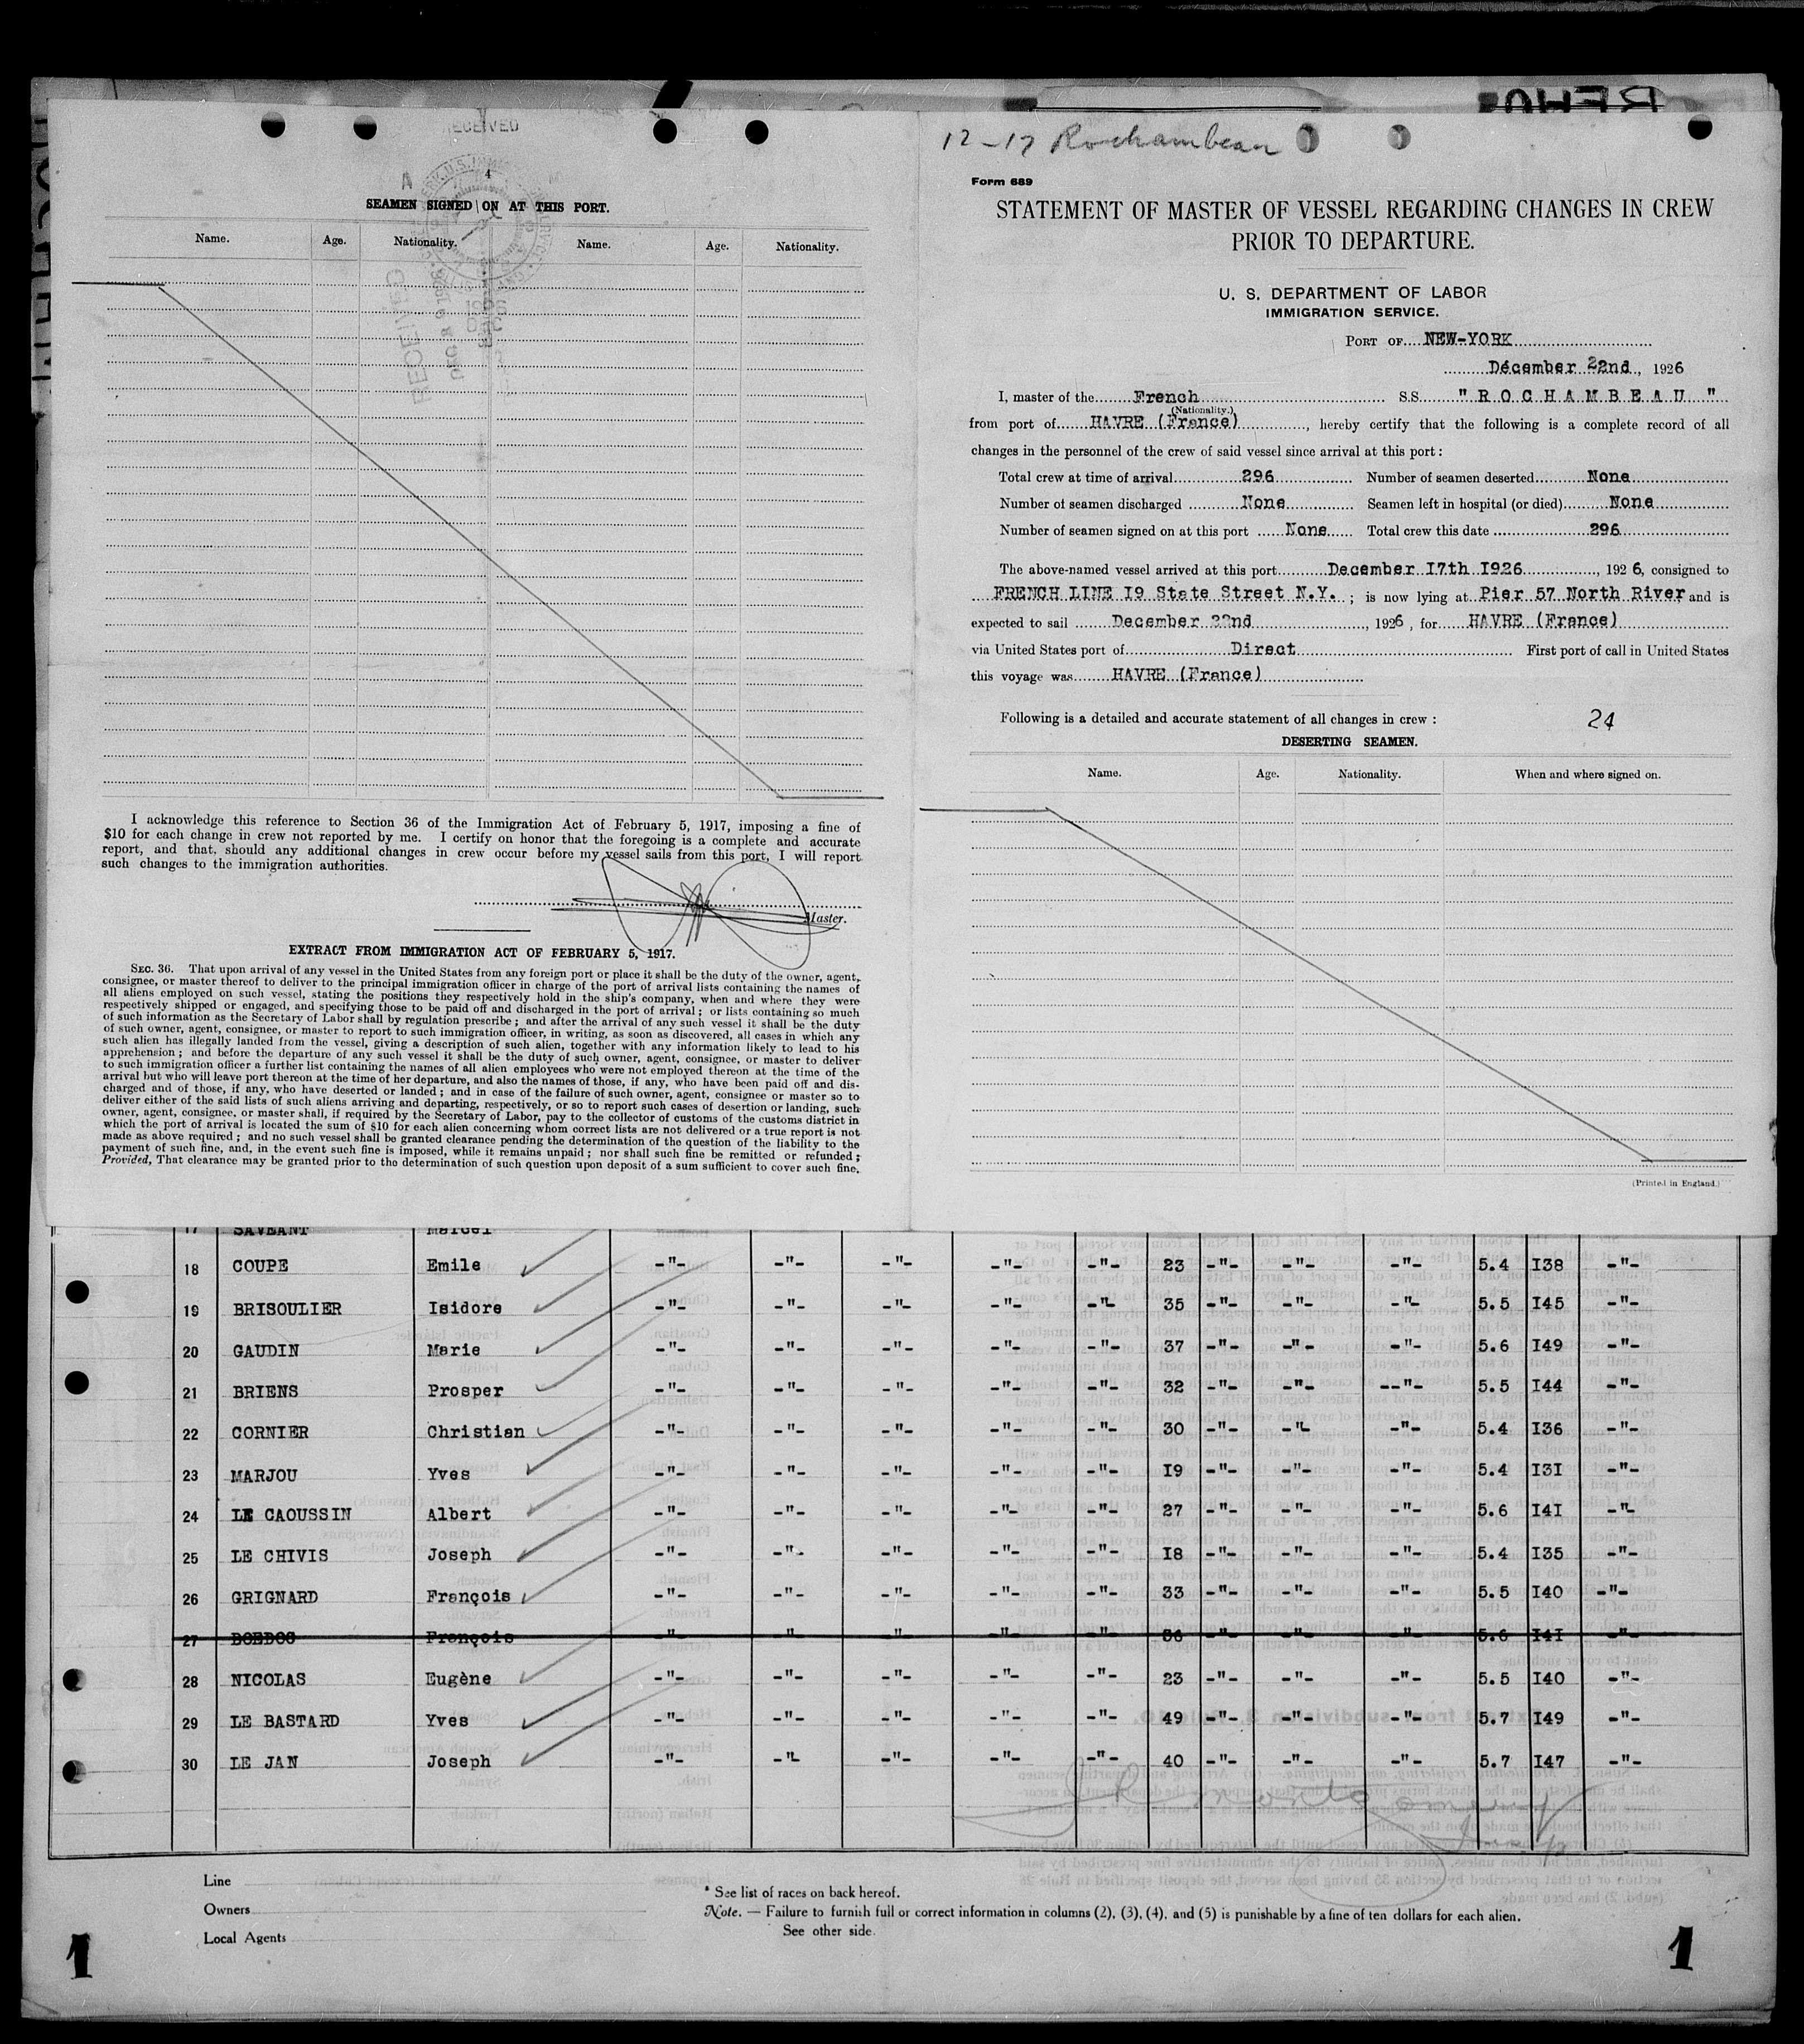 RECEIVED
4
SEAMEN SIGNED ON AT THIS PORT.
Name. Age. Nationality. Name. Age. Nationality.
RECEIVED
I acknowledge this reference to Section 36 of the Immigration Act of February 5, 1917, imposing a fine of
$10 for each change in crew not reported by me. I certify on honor that the foregoing is a complete and accurate
report, and that, should any additional changes in crew occur before my vessel sails from this port, I will report
such changes to the immigration authorities.
Master.
EXTRACT FROM IMMIGRATION ACT OF FEBRUARY 5, 1917.
SEC. 36. That upon arrival of any vessel in the United States from any foreign port or place it shall be the duty of the owner, agent,
consignee, or master thereof to deliver to the principal immigration officer in charge of the port of arrival lists containing the names of
all aliens employed on such vessel, stating the positions they respectively hold in the ship's company, when and where they were
respectively shipped or engaged, and specifying those to be paid off and discharged in the port of arrival; or lists containing so much
of such information as the Secretary of Labor shall by regulation prescribe; and after the arrival of any such vessel it shall be the duty
of such owner, agent, consignee, or master to report to such immigration officer, in writing, as soon as discovered, all cases in which any
such alien has illegally landed from the vessel, giving a description of such alien, together with any information likely to lead to his
apprehension; and before the departure of any such vessel it shall be the duty of such owner, agent, consignee, or master to deliver
to such immigration officer a further list containing the names of all alien employees who were not employed thereon at the time of the
arrival but who will leave port thereon at the time of her departure, and also the names of those, if any, who have been paid off and dis-
charged and of those, if any, who have deserted or landed; and in case of the failure of such owner, agent, consignee or master so to
deliver either of the said lists of such aliens arriving and departing, respectively, or so to report such cases of desertion or landing, such
owner, agent, consignee, or master shall, if required by the Secretary of Labor, pay to the collector of customs of the customs district in
which the port of arrival is located the sum of $10 for each alien concerning whom correct lists are not delivered or a true report is not
made as above required; and no such vessel shall be granted clearance pending the determination of the question of the liability to the
payment of such fine, and, in the event such fine is imposed, while it remains unpaid; nor shall such fine be remitted or refunded;
Provided, That clearance may be granted prior to the determination of such question upon deposit of a sum sufficient to cover such fine.
12-17 Rochambeau
Form 689
STATEMENT OF MASTER OF VESSEL REGARDING CHANGES IN CREW
PRIOR TO DEPARTURE.
U. S. DEPARTMENT OF LABOR
IMMIGRATION SERVICE.
PORT OF NEW-YORK
Décember 22nd, 1926
I, master of the French S.S. " R O C H A M B E A U "
(Nationality.)
from port of HAVRE (France), hereby certify that the following is a complete record of all
changes in the personnel of the crew of said vessel since arrival at this port:
Total crew at time of arrival 296 Number of seamen deserted None
Number of seamen discharged None Seamen left in hospital (or died) None
Number of seamen signed on at this port None Total crew this date 296
The above-named vessel arrived at this port December I7th I926, 1926, consigned to
FRENCH LINE I9 State Street N.Y. ; is now lying at Pier 57 North River and is
expected to sail December 22nd, 1926, for HAVRE (France)
via United States port of Direct First port of call in United States
this voyage was HAVRE (France)
Following is a detailed and accurate statement of all changes in crew: 24
DESERTING SEAMEN.
Name. Age. Nationality. When and where signed on.
(Printed in England.)
17 SAVEANT Marcel
18 COUPE Emile -"- -"- -"- -"- -"- 23 -"- -"- -"- 5.4 I38 -"-
19 BRISOULIER Isidore -"- -"- -"- -"- -"- 35 -"- -"- -"- 5.5 I45 -"-
20 GAUDIN Marie -"- -"- -"- -"- -"- 37 -"- -"- -"- 5.6 I49 -"-
21 BRIENS Prosper -"- -"- -"- -"- -"- 32 -"- -"- --"- 5.5 I44 -"-
22 CORNIER Christian -"- -"- -"- -"- -"- 30 -"- -"- -"- 5.4 I36 -"-
23 MARJOU Yves -"- -"- -"- -"- -"- I9 -"- -"- -"- 5.4 I3I -"-
24 LE CAOUSSIN Albert -"- -"- -"- -"- -"- 27 -"- -"- -"- 5.6 I4I -"-
25 LE CHIVIS Joseph -"- -"- -"- -"- -"- I8 -"- -"- -"- 5.4 I35 -"-
26 GRIGNARD François -"- -"- -"- -"- -"- 33 -"- -"- -"- 5.5 I40 -"-
27 François -"- -"- -"- -"- -"- -"- -"- -"- 5.6 I4I -"-
28 NICOLAS Eugène -"- -"- -"- -"- -"- 23 -"- -"- -"- 5.5 I40 -"-
29 LE BASTARD Yves -"- -"- -"- -"- -"- 49 -"- -"- -"- 5.7 I49 -"-
30 LE JAN Joseph -"- -"- -"- -"- -"- 40 -"- -"- -"- 5.7 I47 -"-
Line
Owners
Local Agents
* See list of races on back hereof.
Note. — Failure to furnish full or correct information in columns (2), (3), (4), and (5) is punishable by a fine of ten dollars for each alien.
See other side.
1
1